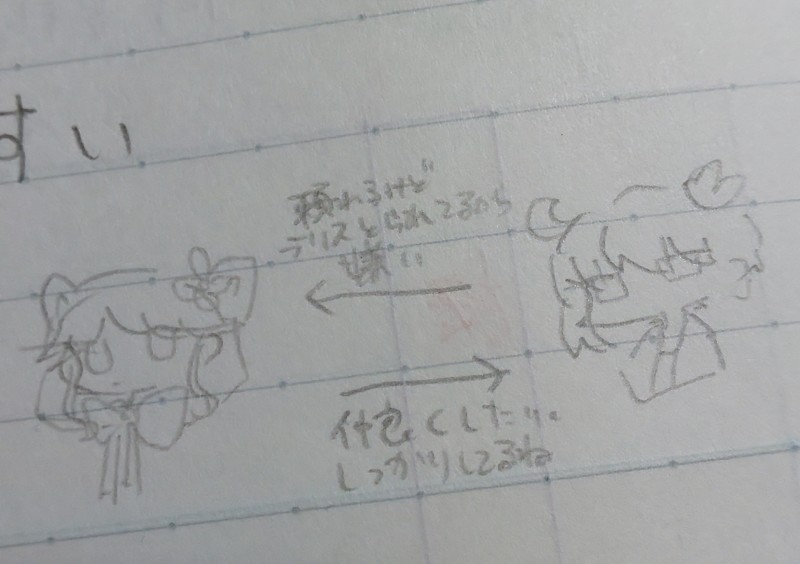 すい
頼れるけど
デリスとられてるから
嫌い
仲良くしたい。
しっかりしてるね